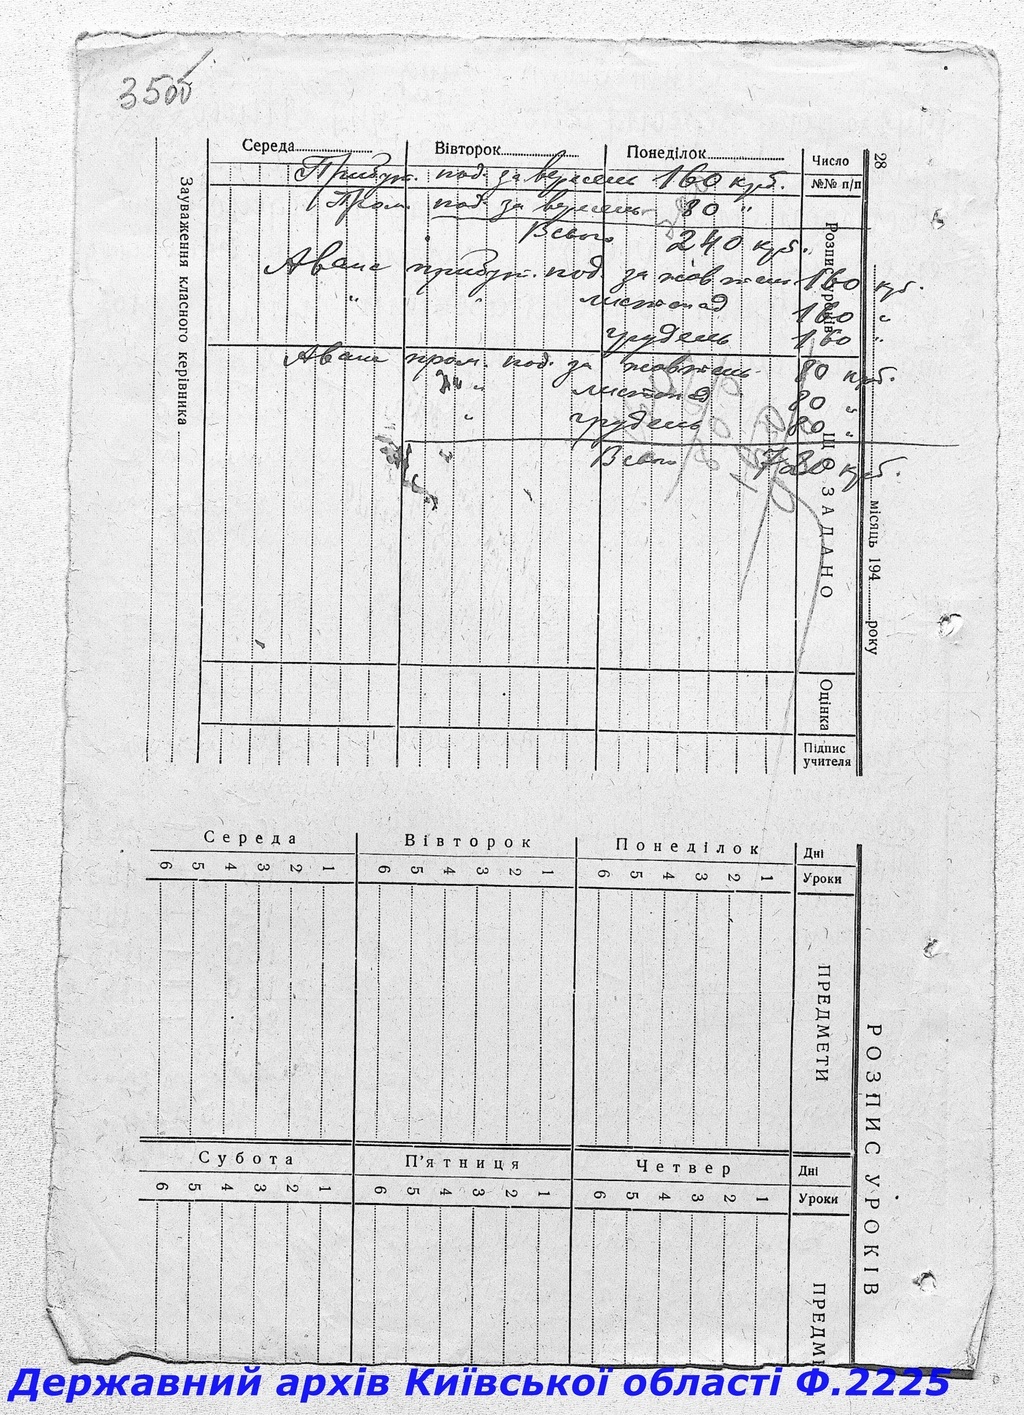 350б
28
Середа
Вівторок
Понеділок
Число
№№ п/п
Прибут. под. за вересень 160 крб.
Пром. под. за вересень 80 "
Всього 240 крб.
Аванс прибут. под. за жовтень 160 крб.
" " листопад 160 "
грудень 160 "
Аванс пром. под. за жовтень 80 крб.
" листопад 80 "
" грудень 80 "
Всього 720 крб.
Розпис уроків
ЩО ЗАДАНО
місяць 194 року
Зауваження класного керівника
Оцінка
Підпис учителя
РОЗПИС УРОКІВ
Середа
Вівторок
Понеділок
Дні
6 5 4 3 2 1 6 5 4 3 2 1 6 5 4 3 2 1 Уроки
ПРЕДМЕТИ
Субота
П'ятниця
Четвер
Дні
6 5 4 3 2 1 6 5 4 3 2 1 6 5 4 3 2 1 Уроки
ПРЕДМ
Державний архів Київської області Ф.2225